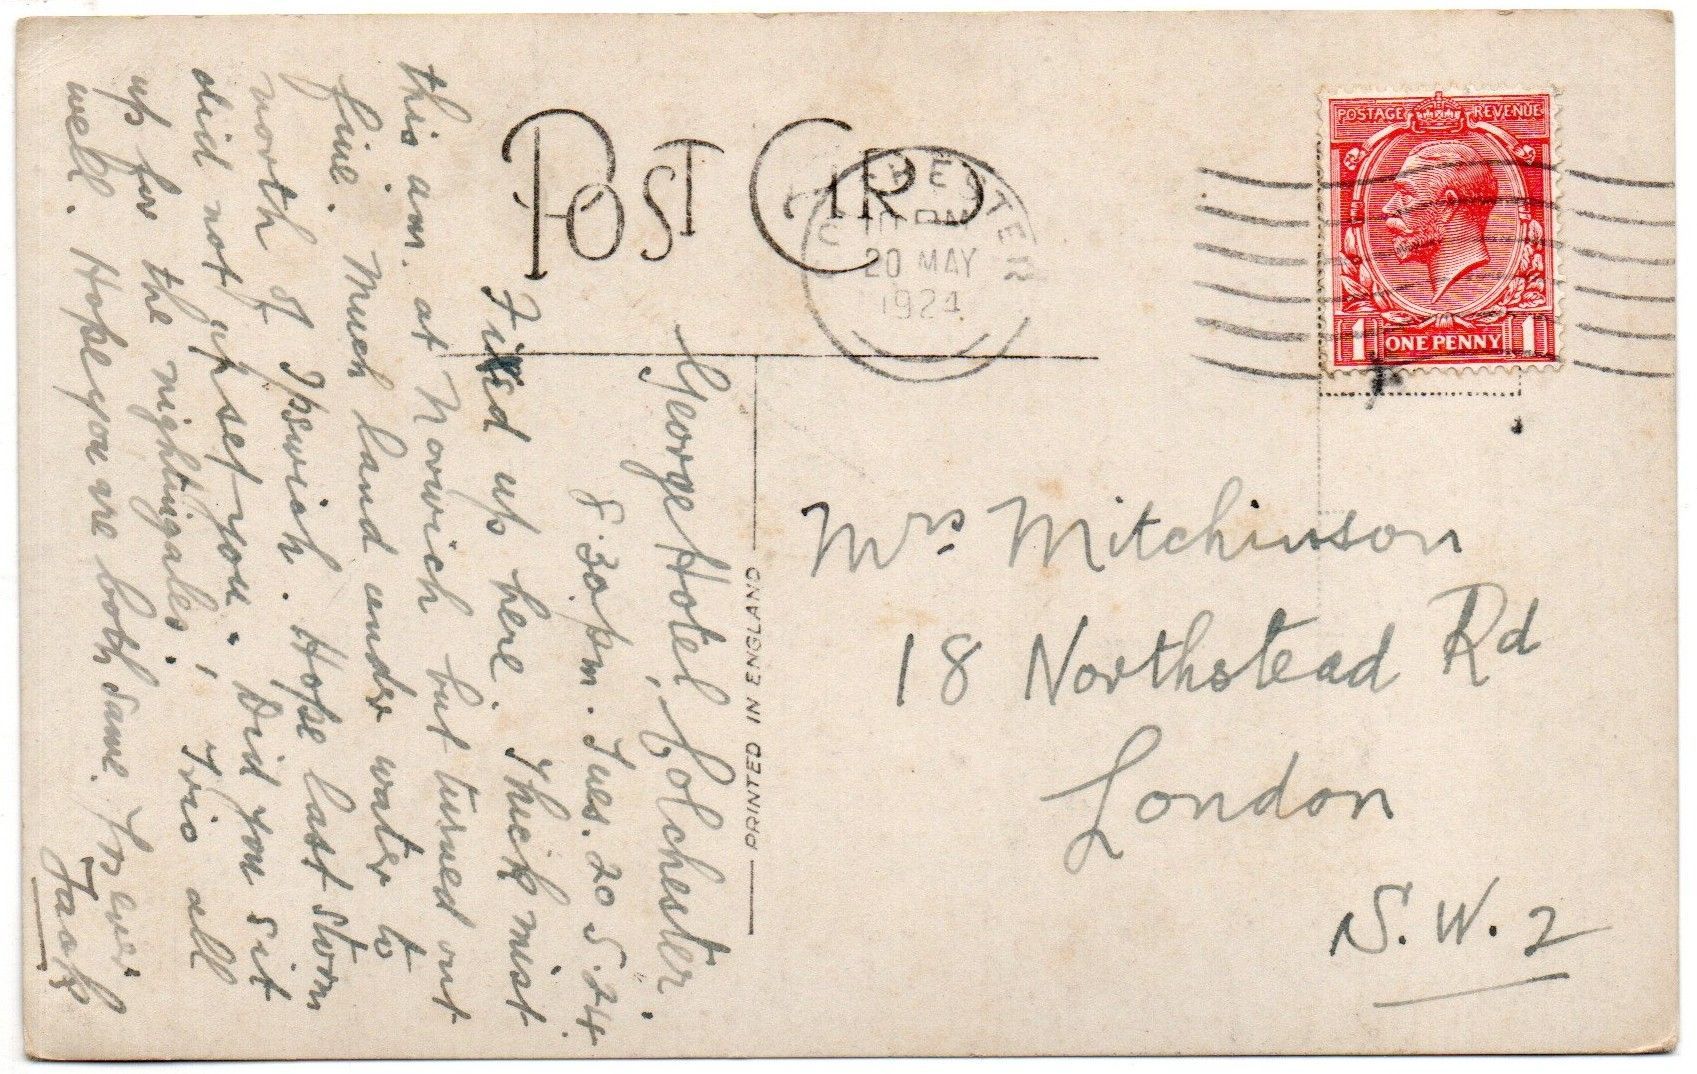 POST CARD
COLCHESTER
10 PM
20 MAY
1924
POSTAGE REVENUE
1 ONE PENNY 1
PRINTED IN ENGLAND
George Hotel, Colchester.
8.30pm. Tues. 20.5.24.
Fixed up here. Thick mist
this am. at Norwich but turned out
fine. Much land under water to
north of Ipswich. Hope last storm
did not upset you. Did you sit
up for the nightingales? I'm all
well. Hope you are both same. Ever
Jack
Mrs. Mitchinson
18 Northstead Rd
London
S.W.2